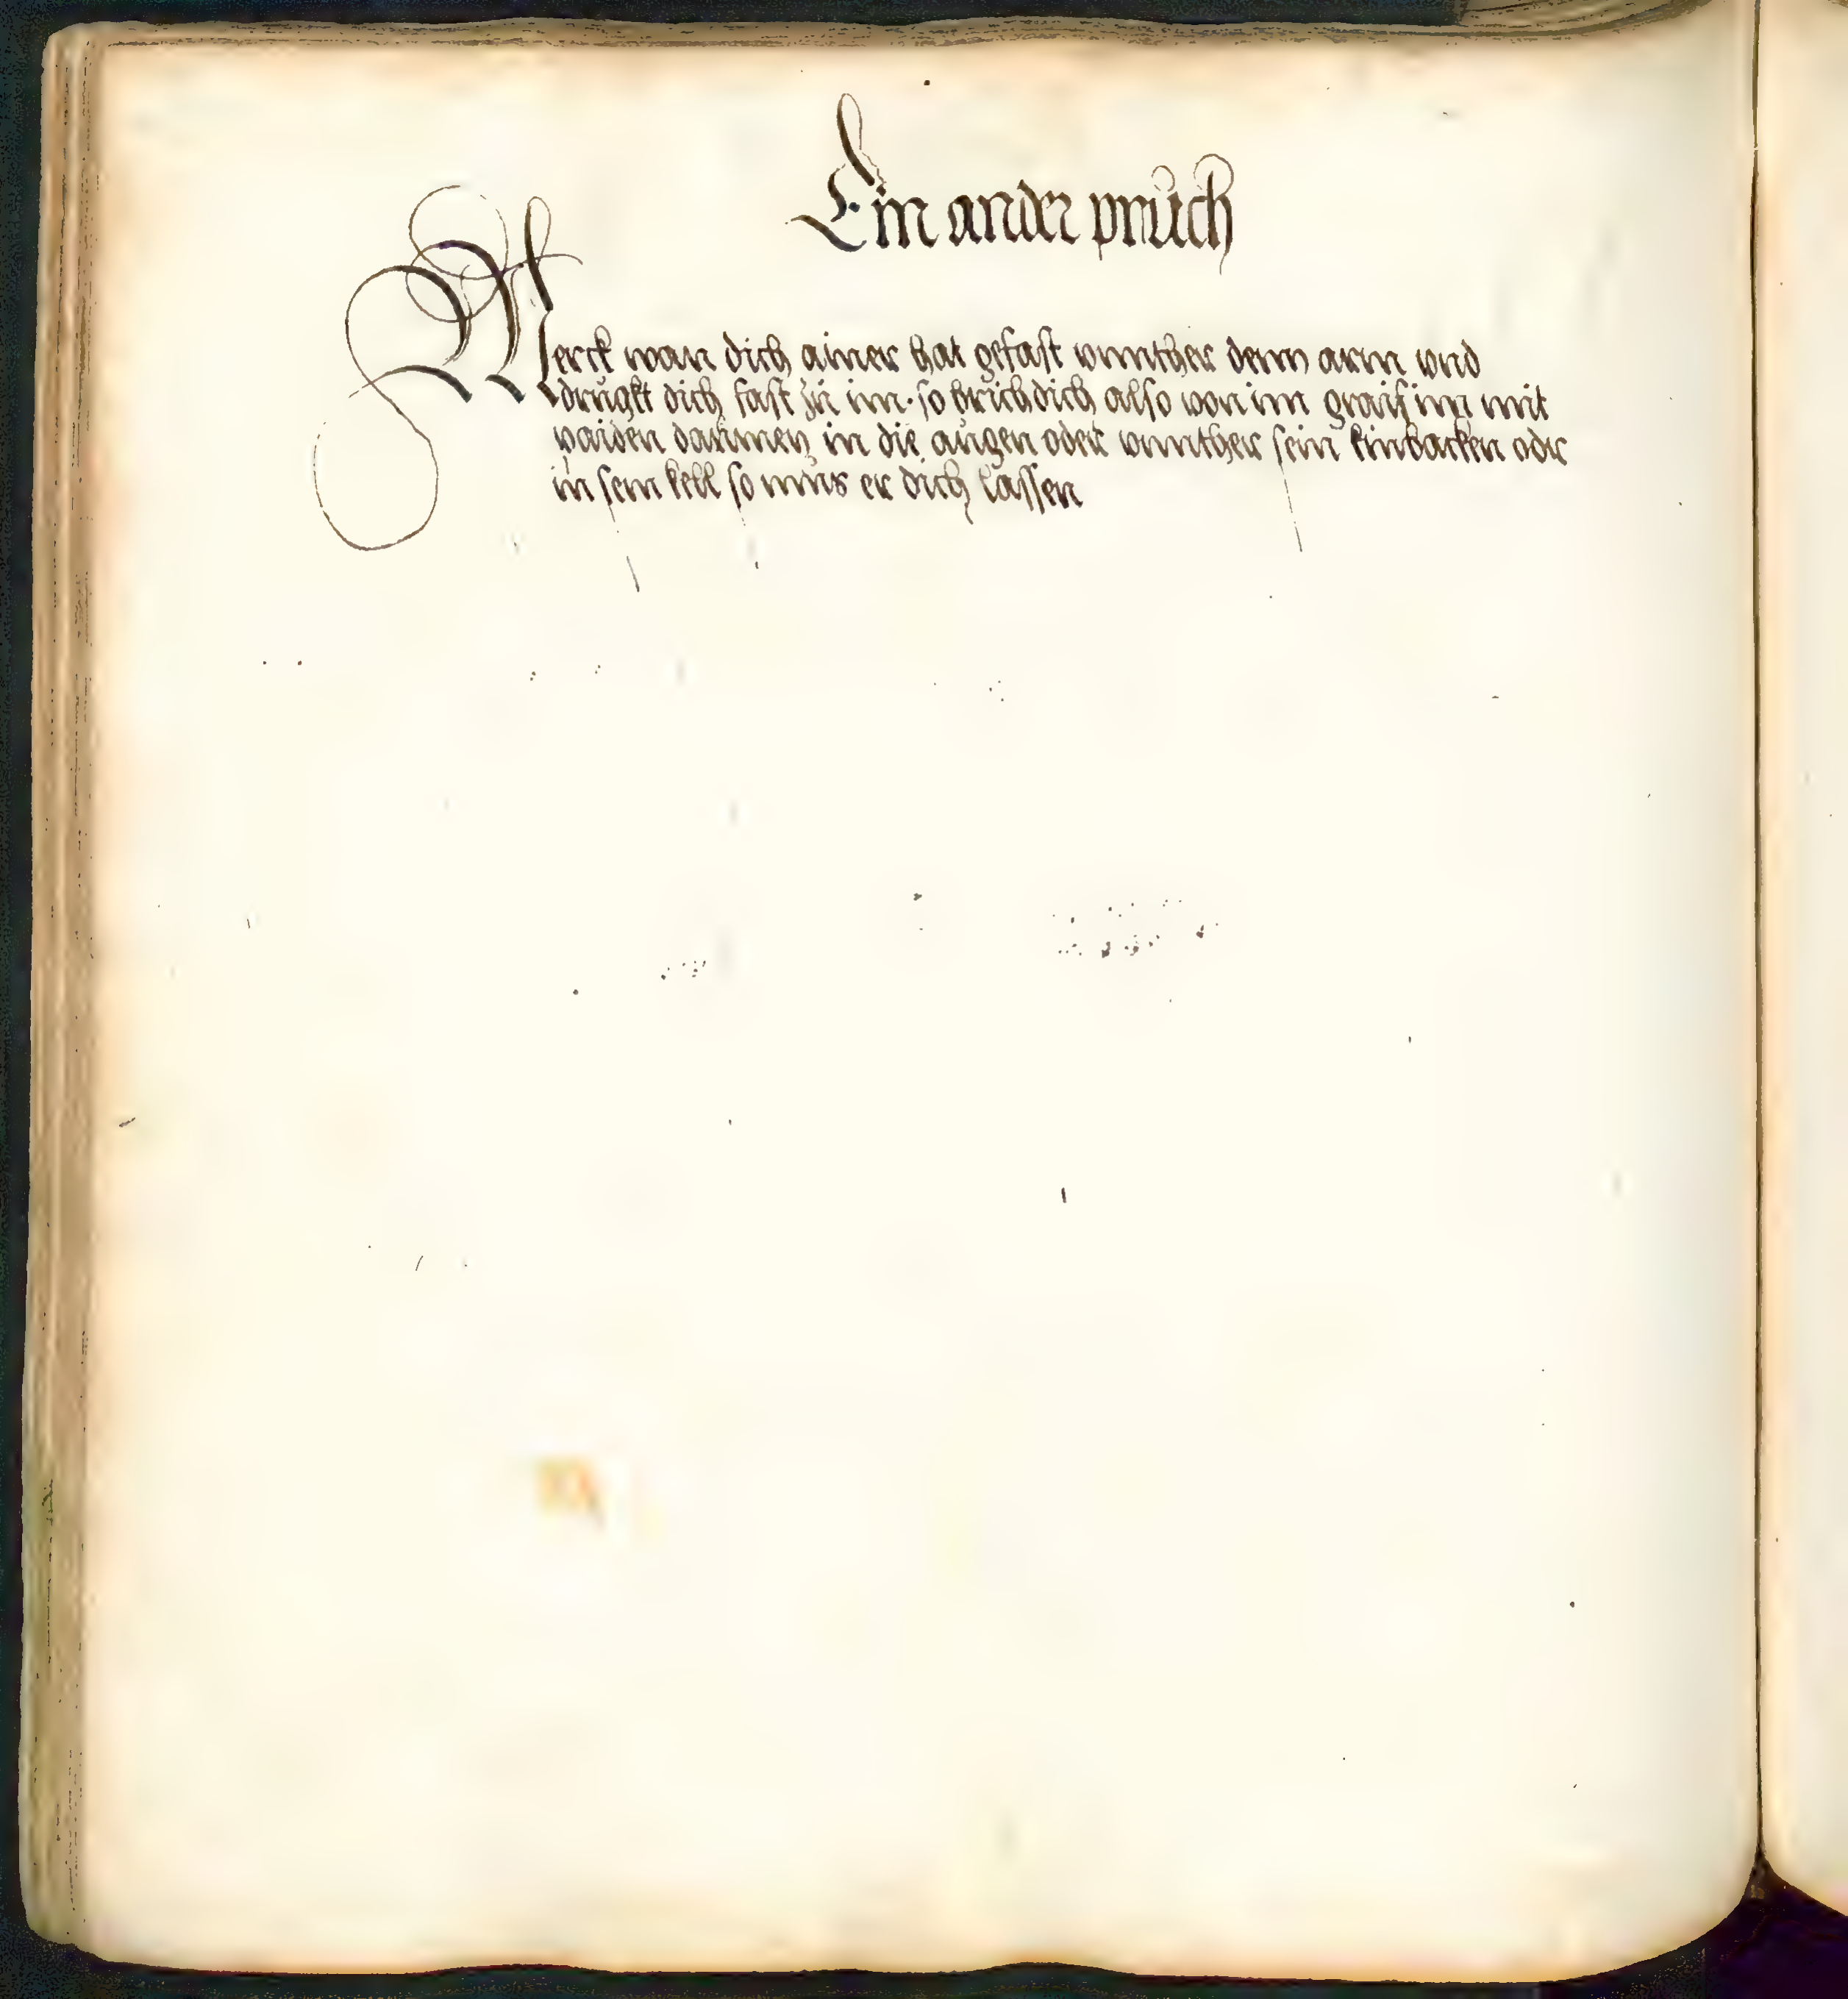 Ein ander pruch
Merck wan dich ainer hat gefast vnnther denn arm vnd
drugkt dich fast zu im · so brich dich also von im graif im mit
paiden daumen in die augen oder vnnther sein kinbacken oder
in sein kell so mus er dich lassen